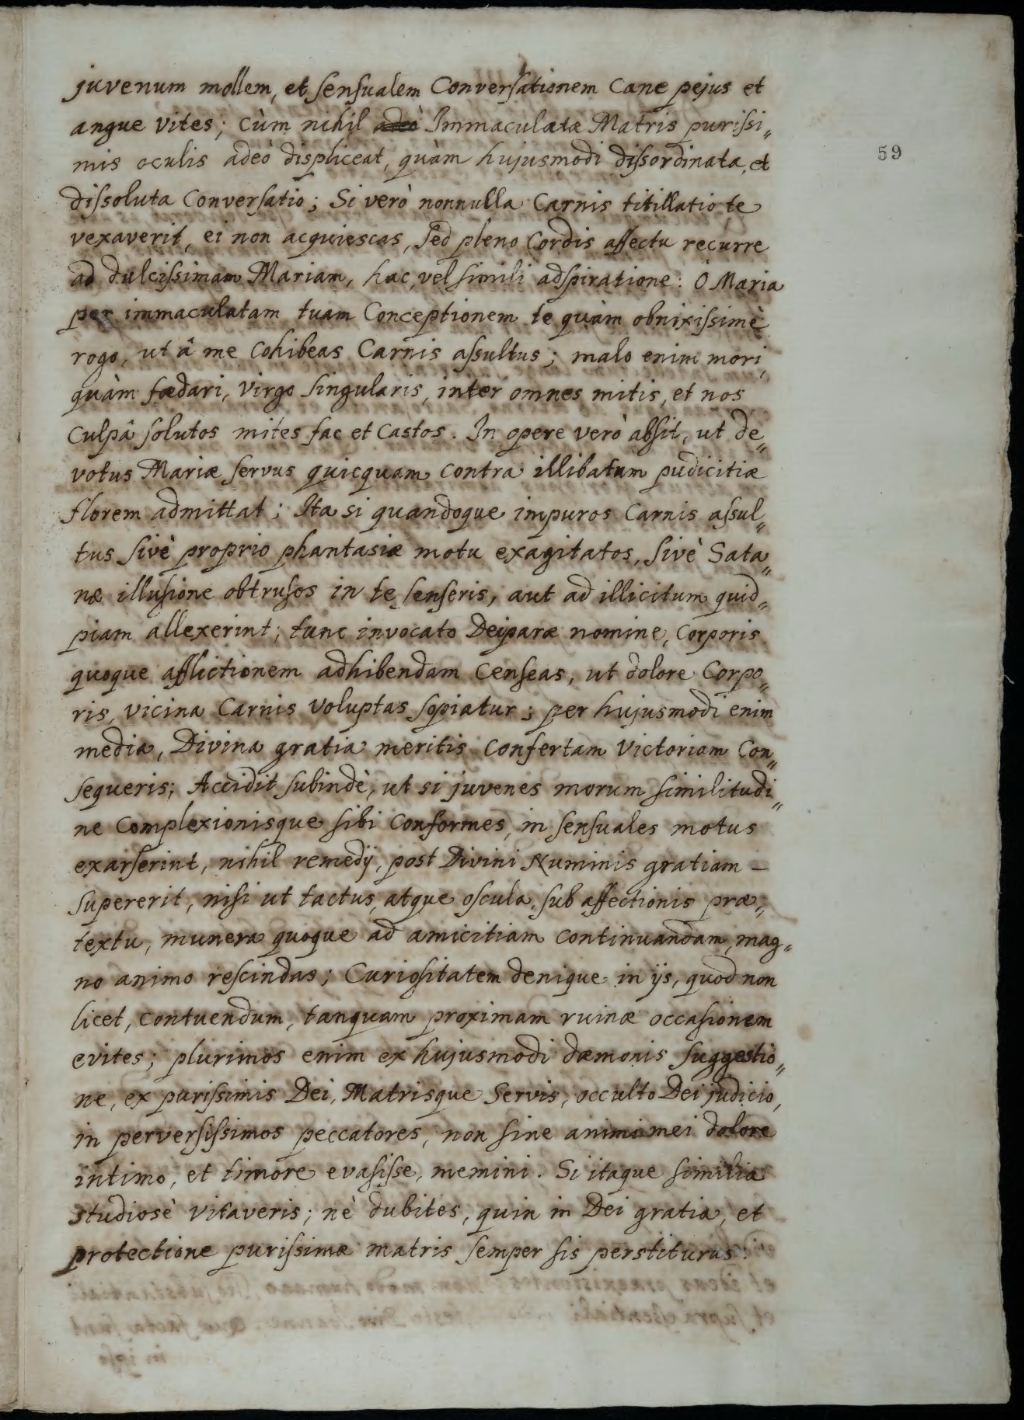 juvenum mollem, et sensualem Conversationem Cane pejus et
angue vites; cùm nihil adeò Immaculatæ Matris purissi„
mis oculis adeò displiceat, quàm hujusmodi dissordinata, et
59
dissoluta Conversatio; Si verò nonnulla Carnis titillatio te
vexaverit, ei non acquiescas, sed pleno Cordis affectu recurre
ad dulcissimam Mariam, hac, vel simili adspiratione: O Maria
per immaculatam tuam Conceptionem te quàm obnixissimè
rogo, ut â me Cohibeas Carnis assultus; malo enim mori,
quàm fœdari, Virgo singularis, inter omnes mitis, et nos
Culpâ solutos mites fac et Castos. In opere verò absit, ut de„
votus Mariæ servus quicquam Contra illibatum pudicitiæ
florem admittat; Ita si quandoque impuros Carnis assul„
tus sivè proprio phantasiæ motu exagitatos, sivè Sata„
næ illusione obtrusos in te senseris, aut ad illicitum quid„
piam allexerint; tunc invocato Deiparæ nomine, Corporis
quoque afflictionem adhibendam Censeas, ut dolore Corpo„
ris, vicina Carnis voluptas sopiatur; per hujusmodi enim
media, Divina gratia meritis Confertam Victoriam Con„
sequeris; Accidit subindè, ut si juvenes morum similitudi„
ne Complexionisque sibi Conformes, in sensuales motus
exarserint, nihil remedij, post Divini Numinis gratiam –
supererit, nisi ut tactus, atque oscula, sub affectionis præ„
textu, munera quoque ad amicitiam Continuandam, mag„
no animo rescindas; Curiositatem denique in ijs, quod non
licet, Contuendum, tanquam proximam ruinæ occasionem
evites; plurimos enim ex hujusmodi dæmonis suggestio„
ne, ex purissimis Dei, Matrisque Servis, occulto Dei judicio,
in perversissimos peccatores, non sine animi mei dolore
intimo, et timore evasisse, memini. Si itaque similia
studiosè vitaveris; nè dubites, quin in Dei gratia, et
protectione purissimæ matris semper sis perstiturus.